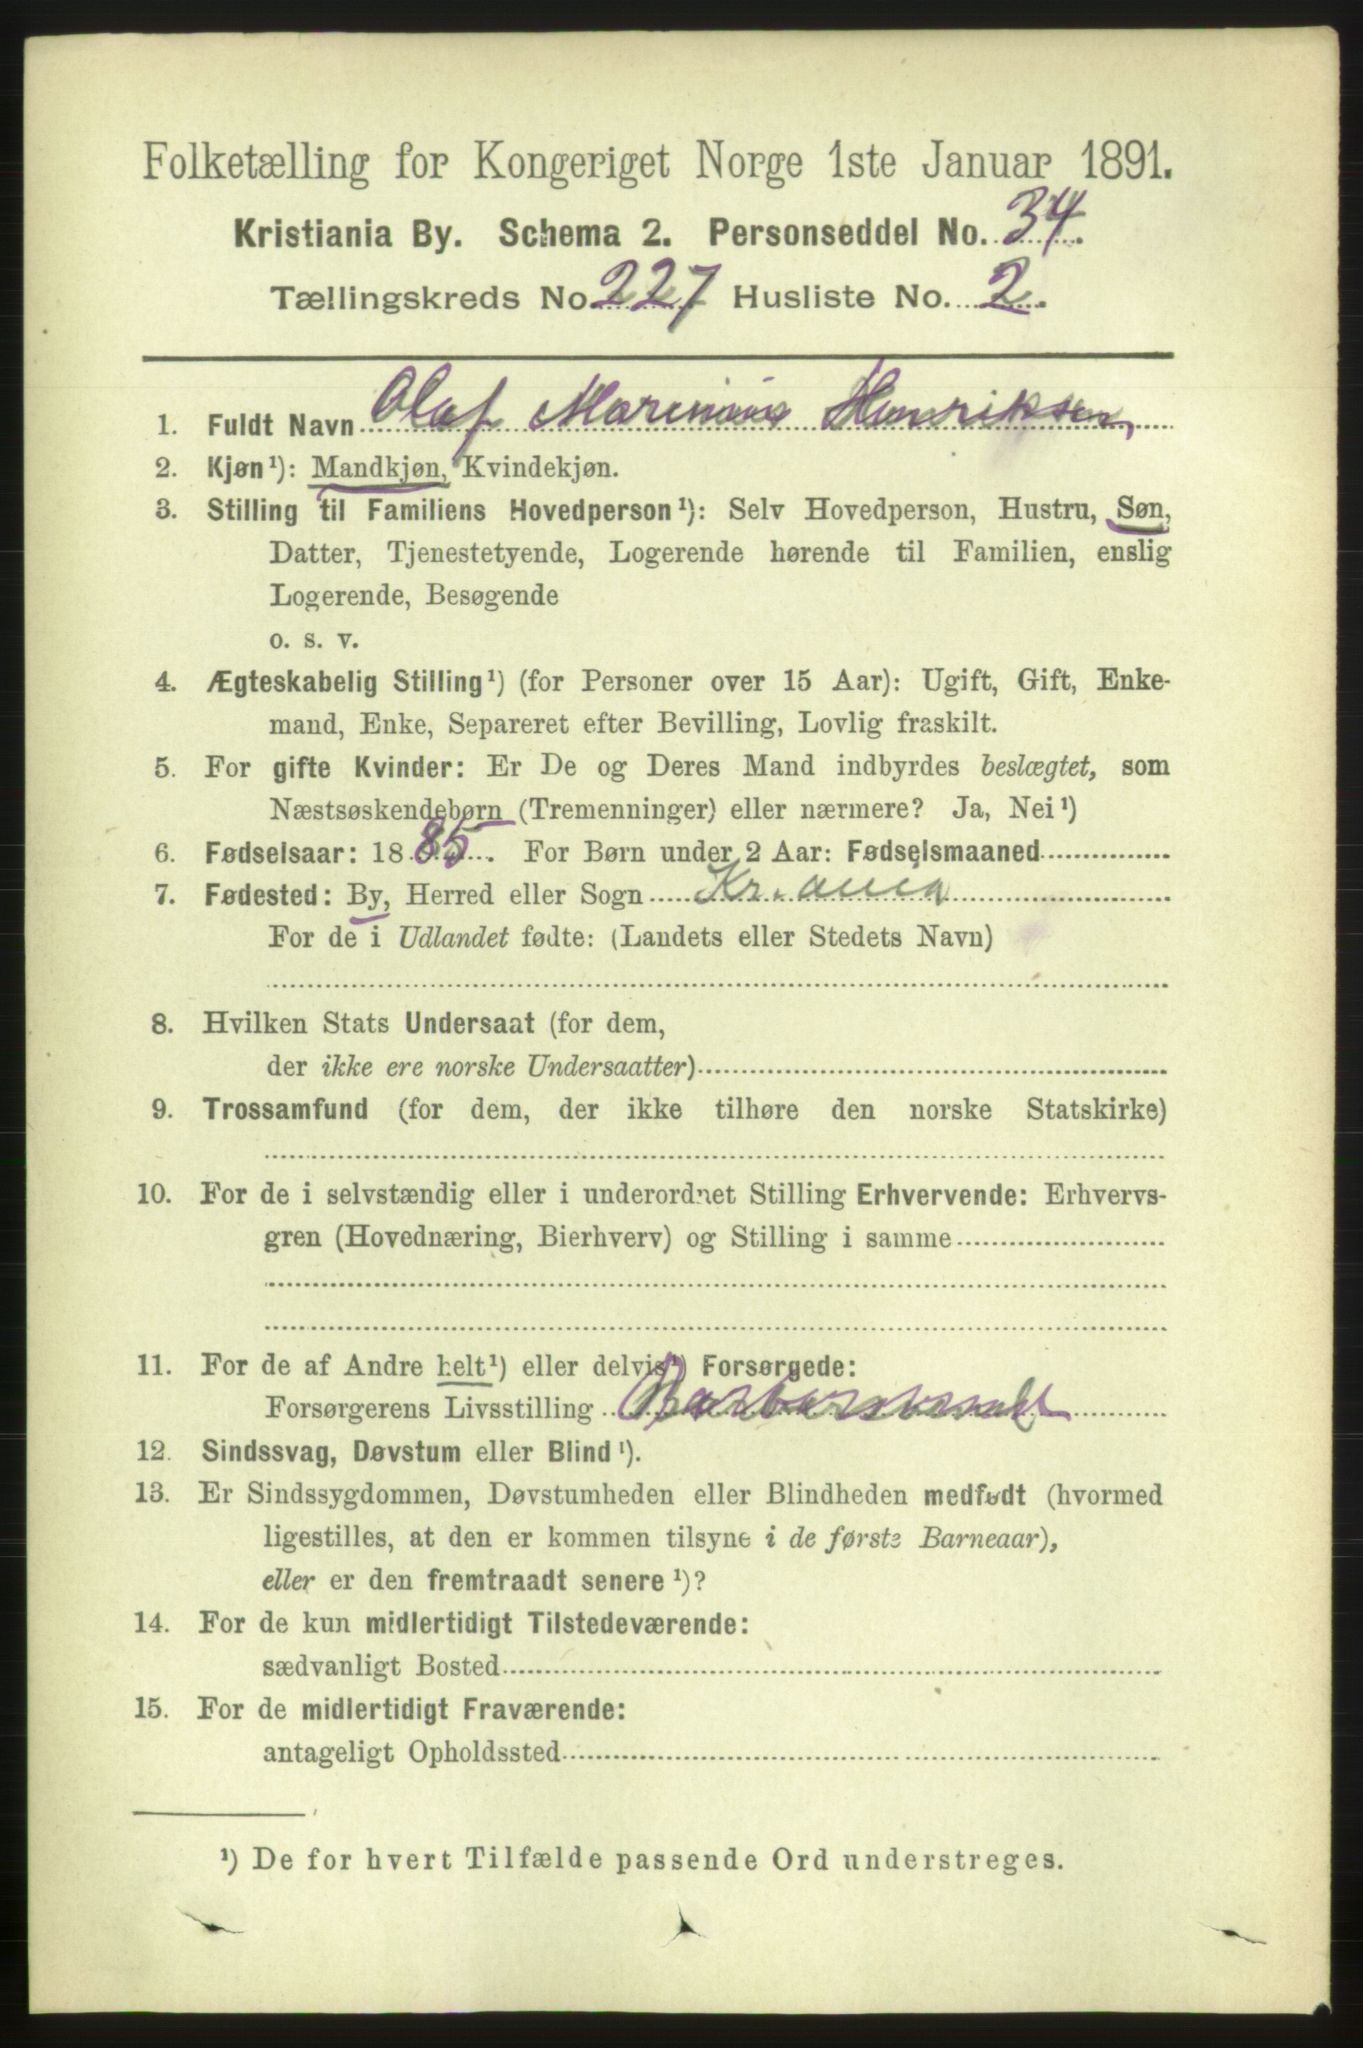 Folketælling for Kongeriget Norge 1ste Januar 1891.
Kristiania By. Schema 2. Personseddel No. 34.
Tællingskreds No. 227 Husliste No. 2.
1. Fuldt Navn Olaf Marinius Henriksen,
2. Kjøn¹): Mandkjøn, Kvindekjøn.
3. Stilling til Familiens Hovedperson¹): Selv Hovedperson, Hustru, Søn,
Datter, Tjenestetyende, Logerende hørende til Familien, enslig
Logerende, Besøgende
o. s. v.
4. Ægteskabelig Stilling¹) (for Personer over 15 Aar): Ugift, Gift, Enke-
mand, Enke, Separeret efter Bevilling, Lovlig fraskilt.
5. For gifte Kvinder: Er De og Deres Mand indbyrdes beslægtet, som
Næstsøskendebørn (Tremenninger) eller nærmere? Ja, Nei¹)
6. Fødselsaar: 1885. For Børn under 2 Aar: Fødselsmaaned
7. Fødested: By, Herred eller Sogn Kr.ania
For de i Udlandet fødte: (Landets eller Stedets Navn)
8. Hvilken Stats Undersaat (for dem,
der ikke ere norske Undersaatter)
9. Trossamfund (for dem, der ikke tilhøre den norske Statskirke)
10. For de i selvstændig eller i underordnet Stilling Erhvervende: Erhvervs-
gren (Hovednæring, Bierhverv) og Stilling i samme
11. For de af Andre helt¹) eller delvis¹) Forsørgede:
Forsørgerens Livsstilling
12. Sindssvag, Døvstum eller Blind¹).
13. Er Sindssygdommen, Døvstumheden eller Blindheden medfødt (hvormed
ligestilles, at den er kommen tilsyne i de første Barneaar),
eller er den fremtraadt senere¹)?
14. For de kun midlertidigt Tilstedeværende:
sædvanligt Bosted
15. For de midlertidigt Fraværende:
antageligt Opholdssted
¹) De for hvert Tilfælde passende Ord understreges.